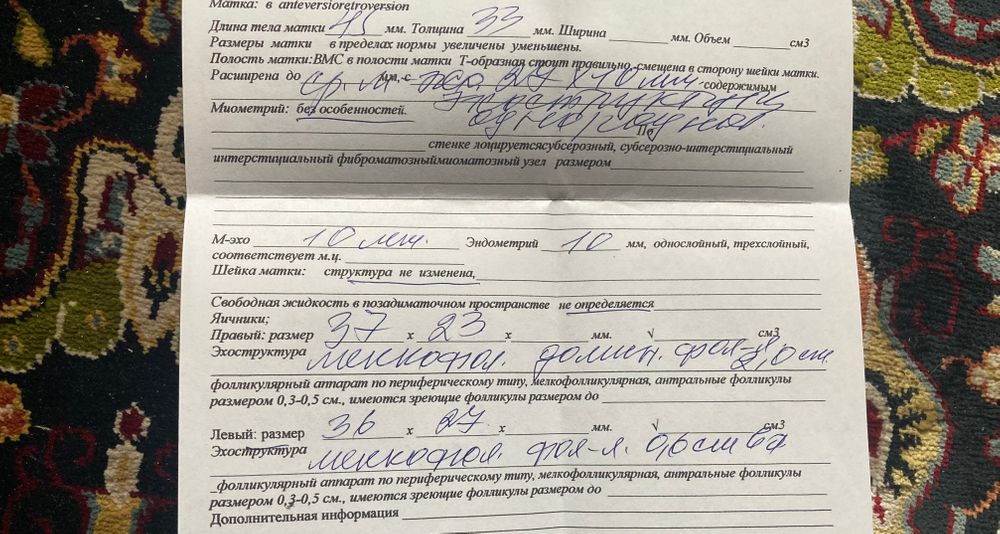 Матка: в anteversioretroversion
Длина тела матки 45 мм. Толщина 33 мм. Ширина мм. Объем см3
Размеры матки в пределах нормы увеличены уменьшены.
Полость матки:ВМС в полости матки Т-образная стоит правильно, смещена в сторону шейки матки.
Расширена до мм, с 27 х 10 мм содержимым
Миометрий: без особенностей. По
стенке лоцируетсясубсерозный, субсерозно-интерстициальный
интерстициальный фиброматозныймиоматозный узел размером
М-эхо 10 мм. Эндометрий 10 мм, однослойный, трехслойный,
соответствует м.ц.
Шейка матки: структура не изменена,
Свободная жидкость в позадиматочном пространстве не определяется
Яичники;
Правый: размер 37 х 23 х мм. √ см3
Эхоструктура мелкофол. домин. фол-л 2,0 см
фолликулярный аппарат по периферическому типу, мелкофолликулярная, антральные фолликулы
размером 0,3-0,5 см., имеются зреющие фолликулы размером до
Левый: размер 36 х 27 х мм. √ см3
Эхоструктура мелкофол. фол-л. 0,6 см
фолликулярный аппарат по периферическому типу, мелкофолликулярная, антральные фолликулы
размером 0,3-0,5 см., имеются зреющие фолликулы размером до
Дополнительная информация